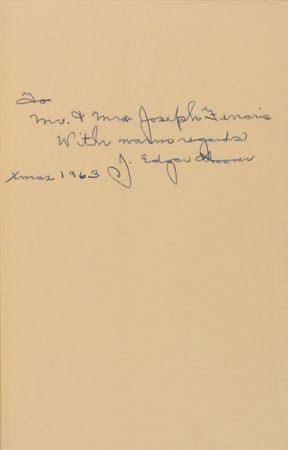 To
Mr. & Mrs. Joseph Ferraris
With warm regards
J. Edgar Hoover
Xmas 1963